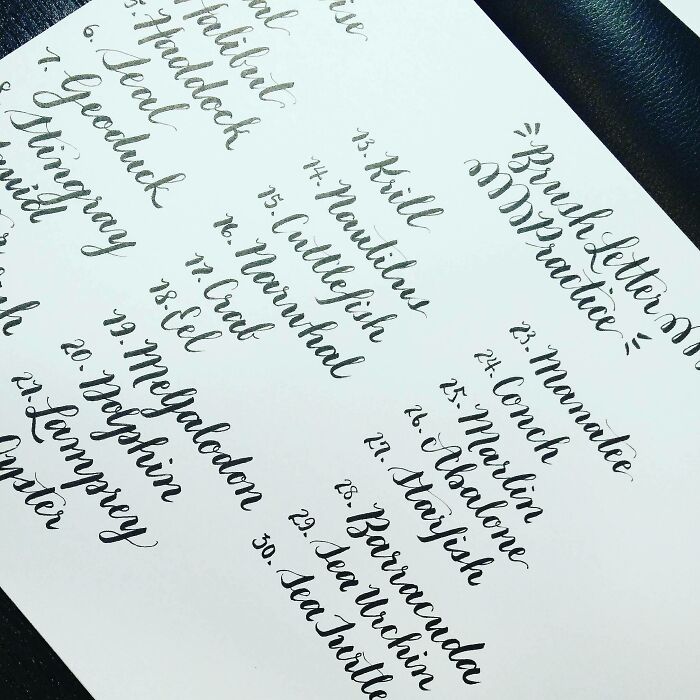 Brush Letter
Practice
5. Halibut
Haddock
6. Seal
7. Geoduck
8. Stingray
13. Krill
14. Nautilus
15. Cuttlefish
16. Narwhal
17. Crab
18. Eel
19. Megalodon
20. Dolphin
21. Lamprey
Oyster
23. Manatee
24. Conch
25. Marlin
26. Abalone
27. Starfish
28. Barracuda
29. Sea Urchin
30. Sea Turtle